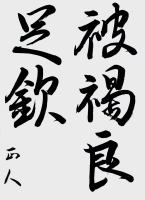 被褐良
足欽
正人